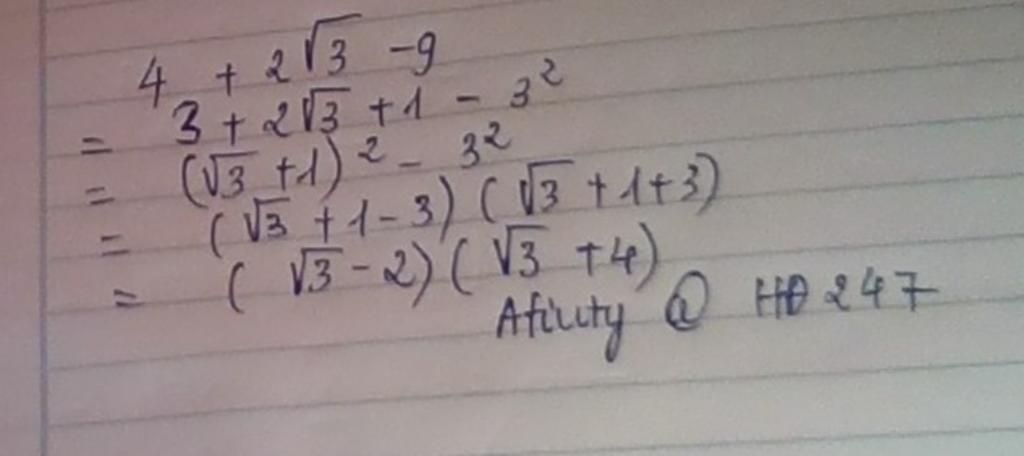 4 + 2√3 - 9
= 3 + 2√3 + 1 - 3²
= (√3 + 1)² - 3²
= (√3 + 1 - 3) (√3 + 1 + 3)
= (√3 - 2) (√3 + 4)
@ HĐ 247